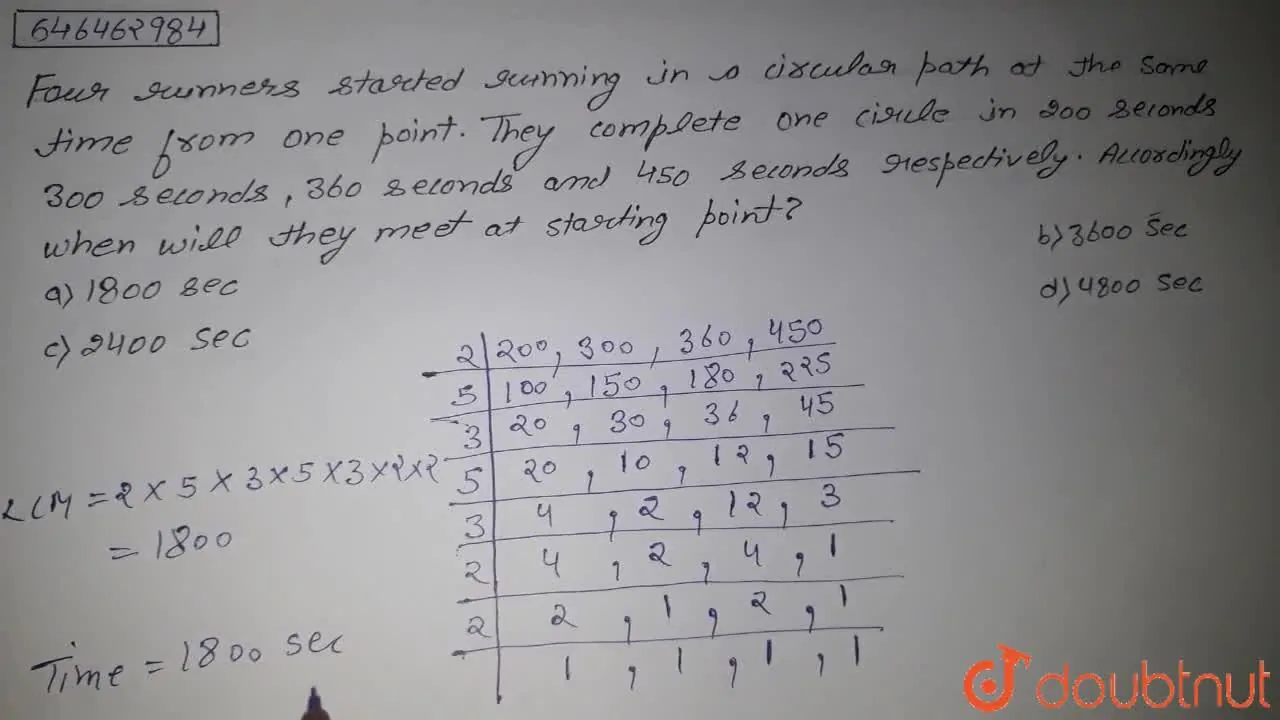 646462984
Four runners started running in a circular path at the same
time from one point. They complete one circle in 200 seconds
300 seconds, 360 seconds and 450 seconds respectively. Accordingly
when will they meet at starting point?
a) 1800 sec
b) 3600 sec
c) 2400 sec
d) 4800 sec
2 | 200, 300, 360, 450
5 | 100, 150, 180, 225
3 | 20, 30, 36, 45
5 | 20, 10, 12, 15
3 | 4, 2, 12, 3
2 | 4, 2, 4, 1
2 | 2, 1, 2, 1
1, 1, 1, 1
LCM = 2 × 5 × 3 × 5 × 3 × 2 × 2
= 1800
Time = 1800 sec
doubtnut